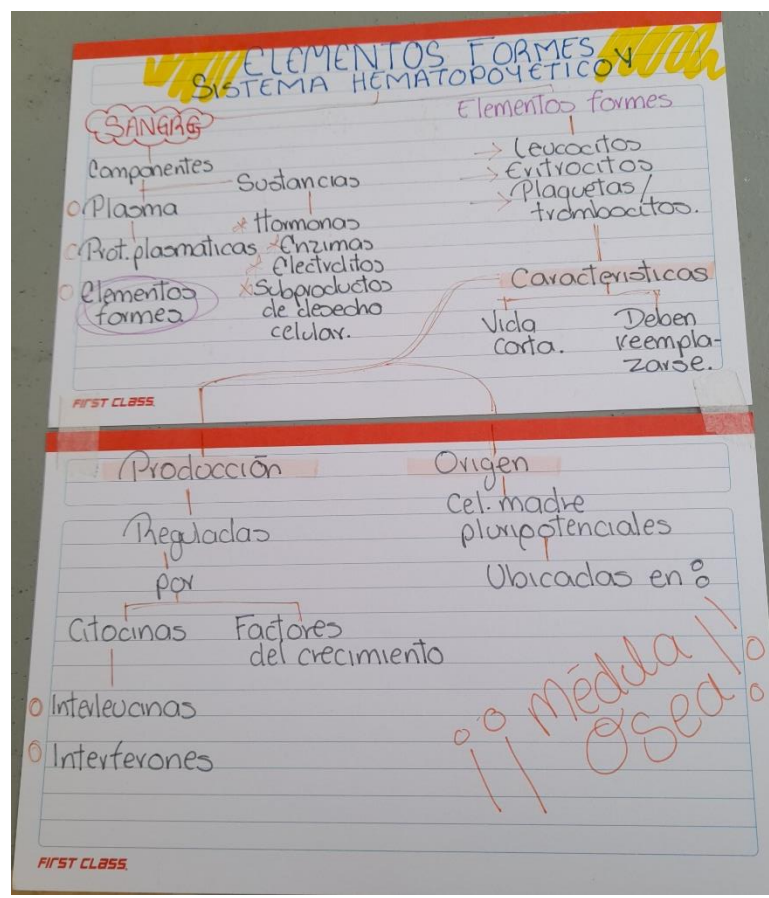 ELEMENTOS FORMES Y
SISTEMA HEMATOPOYÉTICO
SANGRE
Componentes
Plasma
Prot. plasmaticas
Elementos
formes
Sustancias
Hormonas
Enzimas
Electrolitos
Subproductos
de desecho
celular.
Elementos formes
Leucocitos
Eritrocitos
Plaquetas/
trombocitos.
Caracteristicas
Vida
corta.
Deben
reempla-
zarse.
FIRST CLASS.
Producción
Reguladas
por
Citocinas
Factores
del crecimiento
Interleucinas
Interferones
Origen
Cel. madre
pluripotenciales
Ubicadas en:
¡¡Médula
Osea!!
FIRST CLASS.